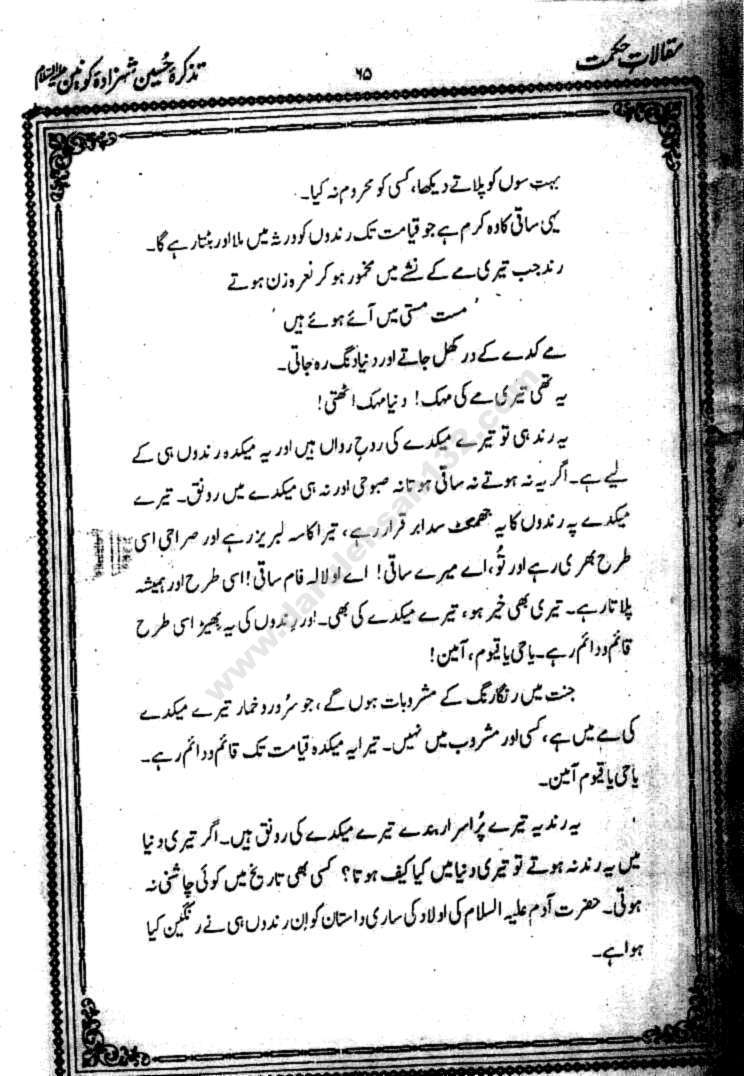 مقالات حکمت
۶۵
تذکرۂ حُسین شہزادۂ کونین علیہ السلام
بہت سوں کو پلاتے دیکھا، کسی کو محروم نہ کیا۔
یہی ساقی کا وہ کرم ہے جو قیامت تک رندوں کو ورثہ میں ملا اور بٹتا رہے گا۔
رند جب تیری مے کے نشے میں مخمور ہو کر نعرہ زن ہوتے
’ مست مستی میں آئے ہوئے ہیں ‘
مے کدے کے در کھل جاتے اور دنیا دنگ رہ جاتی۔
یہ تھی تیری مے کی مہک! دنیا مہک اٹھتی!
یہ رند ہی تو تیرے میکدے کی روحِ رواں ہیں اور یہ میکدہ رندوں ہی کے
لیے ہے۔ اگر یہ نہ ہوتے نہ ساقی ہوتا نہ صبوحی اور نہ ہی میکدے میں رونق۔ تیرے
میکدے پہ رندوں کا یہ جھمگٹ سدا برقرار رہے، تیرا کاسہ لبریز رہے اور صراحی اسی
طرح بھری رہے اور تُو، اے میرے ساقی! اے او لالہ فام ساقی! اسی طرح اور ہمیشہ
پلاتا رہے۔ تیری بھی خیر ہو، تیرے میکدے کی بھی۔ اور رندوں کی یہ بھیڑ اسی طرح
قائم و دائم رہے۔ یا حی یا قیوم، آمین!
جنت میں رنگا رنگ کے مشروبات ہوں گے، جو سُرور و خمار تیرے میکدے
کی مے میں ہے، کسی اور مشروب میں نہیں۔ تیرا یہ میکدہ قیامت تک قائم و دائم رہے۔
یا حی یا قیوم آمین۔
یہ رند یہ تیرے پُراسرار بندے تیرے میکدے کی رونق ہیں۔ اگر تیری دنیا
میں یہ رند نہ ہوتے تو تیری دنیا میں کیا کیف ہوتا؟ کسی بھی تاریخ میں کوئی چاشنی نہ
ہوتی۔ حضرت آدم علیہ السلام کی اولاد کی ساری داستان کو اِن رندوں ہی نے رنگین کیا
ہوا ہے۔